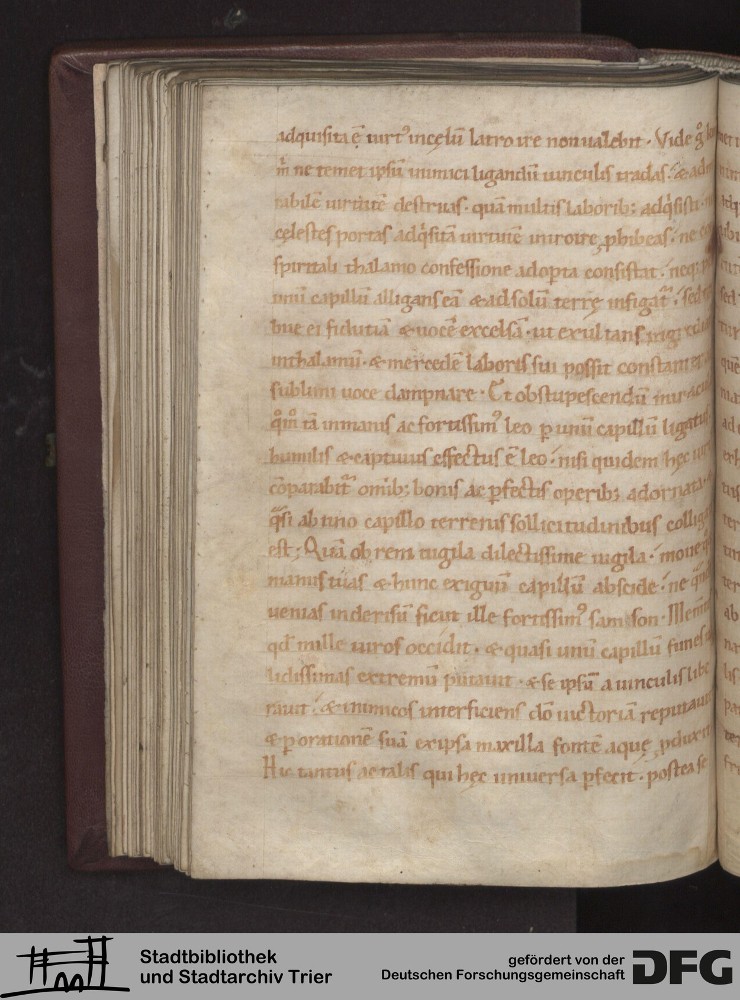 adquisita ē uirt᾽ in cęlū latro ire non ualebit · Vide g̊
m̄ ne temet ipsū inimici ligandū uinculis tradas · &
rabilē uirtutē destruas · quā multis laborib; adq̇sisti ·
cęlestes portas adq̇sitā uirtutē introire ꝓhibeas · ne
spiritali thalamo confessione adoꝑta consistat · neq;
unū capillū alligans eā & ad solū terrę infigat᷑ · sed
bue ei fiduciā & uocē excelsā · ut exultans
in thalamū · & mercedē laboris sui possit constanter
sublimi uoce dampnare · Et obstupescendū
q̊m̊ tā inmanis ac fortissim᾽ leo ꝑ unū capillū ligatus
humilis & captiuus effectus ē leo · nisi quidem hęc
cōparabit᷑ om̄ib; bonis ac ꝑfectis operib; adornata ·
q̈si ab uno capillo terrenis sollicitudinibus
est; Quā ob rem uigila dilectissime uigila ·
manus tuas & hunc exiguū capillū abscide · ne
uenias in derisū sicut ille fortissim᾽ samson ·
qd̄ mille uiros occidit · & quasi unū capillū funes
lidissimas extremū putauit · & se ipsū a uinculis libe
rauit · & inimicos interficiens dō uictoriā reputauit
& ꝑ orationē suā ex ipsa maxilla fontē aquę ꝓduxit
Hic tantus ac talis qui hęc uniuersa ꝑfecit · postea se
Stadtbibliothek
und Stadtarchiv Trier
gefördert von der
Deutschen Forschungsgemeinschaft
DFG